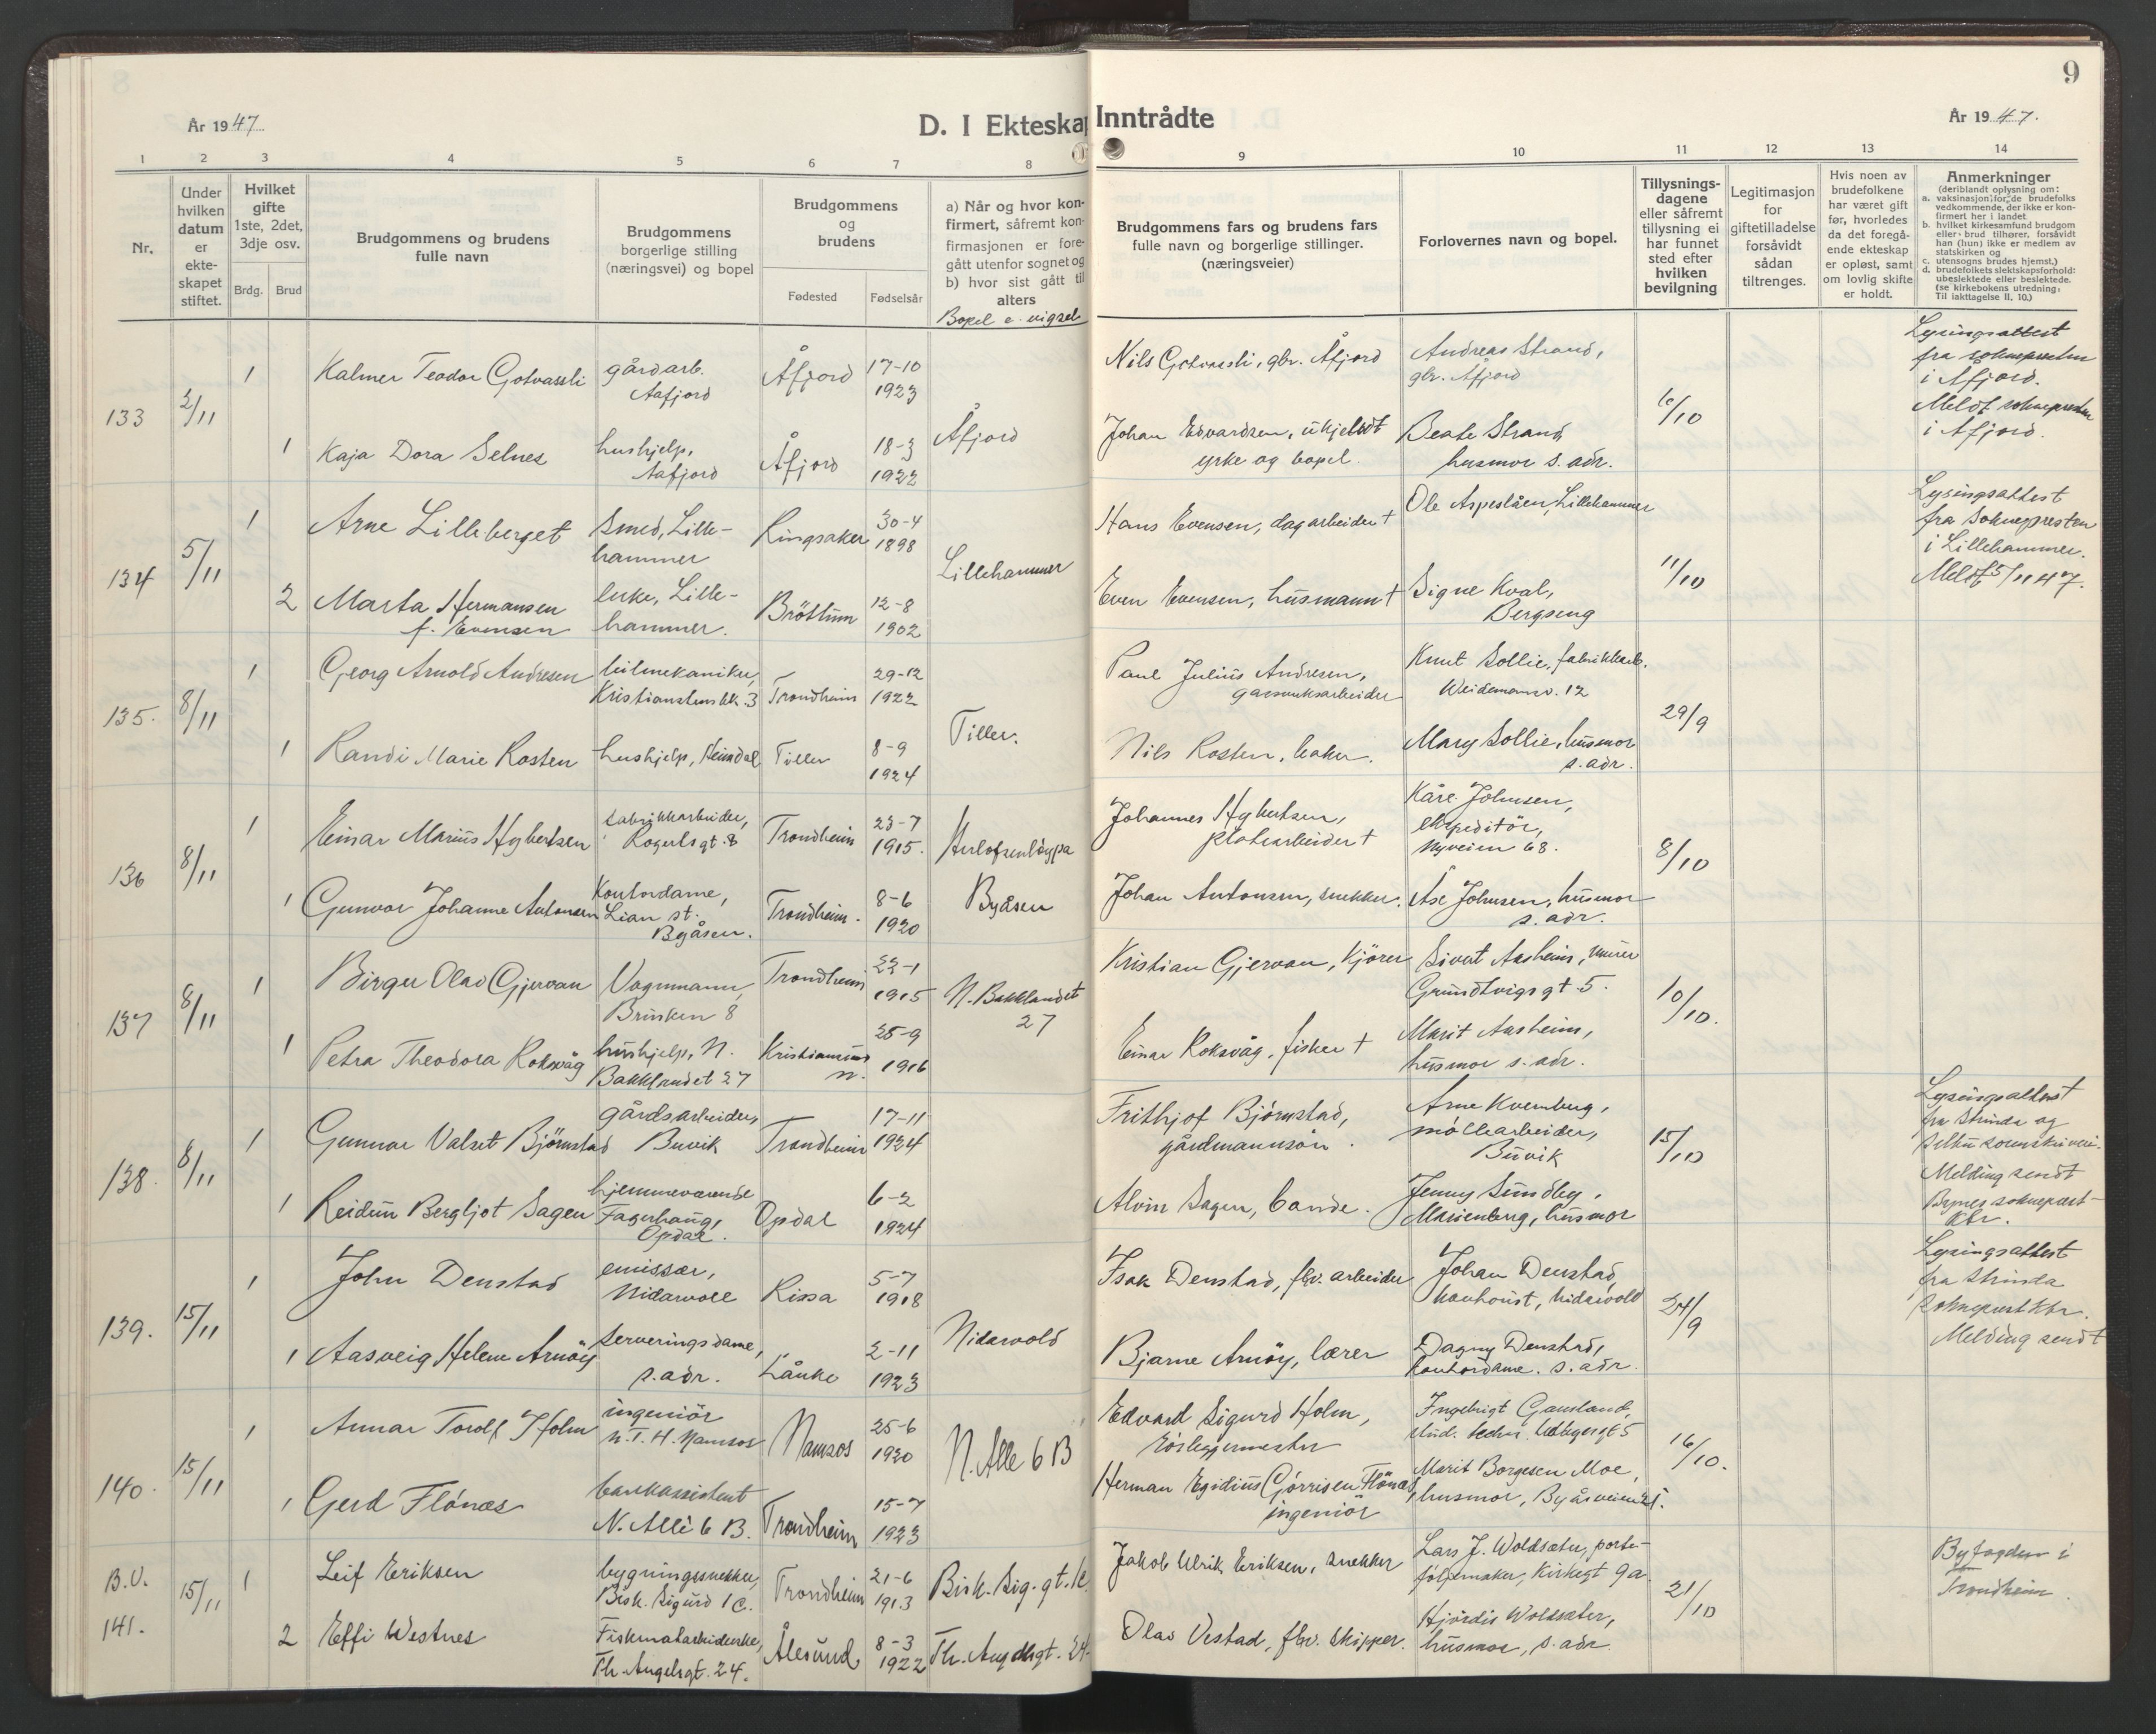 8
9
År 1947.
D. I Ekteskap Inntrådte
År 1947.
1 2 3 4 5 6 7 8 9 10 11 12 13 14
Nr.
Under hvilken datum er ekteskapet stiftet.
Hvilket gifte 1ste, 2det, 3dje osv.
Brdg. Brud
Brudgommens og brudens fulle navn
Brudgommens borgerlige stilling (næringsvei) og bopel
Brudgommens og brudens
Fødested Fødselsår
a) Når og hvor konfirmert, såfremt konfirmasjonen er foregått utenfor sognet og
b) hvor sist gått til alters
Bopel e. vigsel
Brudgommens fars og brudens fars fulle navn og borgerlige stillinger. (næringsveier)
Forlovernes navn og bopel.
Tillysningsdagene eller såfremt tillysning ei har funnet sted efter hvilken bevilgning
Legitimasjon for giftetilladelse forsåvidt sådan tiltrenges.
Hvis noen av brudefolkene har været gift før, hvorledes da det foregående ekteskap er opløst, samt om lovlig skifte er holdt.
Anmerkninger
(deriblandt oplysning om:
a. vaksinasjon for, de brudefolks vedkommende, der ikke er konfirmert her i landet
b. hvilket kirkesamfund brudgom eller brud tilhører, forsåvidt han (hun) ikke er medlem av statskirken og
c. utensogns brudes hjemst.)
d. brudefolkets slektskapsforhold: ubeslektede eller beslektede.
(se kirkebokens utredning: Til iakttagelse II, 10.)
133 2/11
1 Kalmer Teodor Gotvassli gårdarb. Aafjord Åfjord 17-10 1923
Nils Gotvassli, gbr. Åfjord
Andreas Strand, gbr. Åfjord
1 Kaja Dora Selnes hushjelp, Aafjord Åfjord 18-3 1922 Åfjord
Johan Edvardsen, ukjendt yrke og bopel.
Beate Strand, husmor s. adr.
6/10
Lysingsattest fra soknepresten i Åfjord.
Meldt soknepresten i Åfjord.
134 5/11
1 Arne Lilleberget Smed, Lillehammer Ringsaker 30-4 1898
Hans Evensen, dagarbeider †
Ole Aspeslåen, Lillehammer
2 Marta Hermansen f. Evensen Lillehammer. Brøttum 12-8 1902 Lillehammer
Even Evensen, husmann †
Signe Kval, Bergseng
11/10
Lysingsattest fra Soknepresten i Lillehammer.
Meldt 5/11 47.
135. 8/11
1 Georg Arnold Andresen bilmekaniker, Kristianstensbk. 3 Trondheim 29-12 1922
Paul Julius Andresen, gassverksarbeider
Knut Sollie, fabrikkarb. Weidemannsv. 12
1 Randi Marie Rosten hushjelp, Heimdal Tiller 8-9 1924 Tiller.
Nils Rosten, baker.
Mary Sollie, husmor s. adr.
29/9
136 8/11
1 Einar Marius Hybertsen fabrikkarbeider, Rogertsgt. 8 Trondheim 23-7 1915. Herlofsenløypa
Johannes Hybertsen, platearbeider †
Kåre Johnsen, ekspeditør, Nyveien 68.
1 Gunvor Johanne Antonsen Kontordame, Lian st. Byåsen. Trondheim. 8-6 1920 Byåsen
Johan Antonsen, snekker.
Åse Johnsen, husmor s. adr.
8/10
137 8/11
1 Birger Olav Gjervan Vognmann, Brinken 8 Trondheim 22-1 1915 N. Bakklandet 27
Kristian Gjervan, Kjører
Sivert Aasheim, murer Grundtvigsgt 5.
1 Petra Theodora Roksvåg hushjelp, N. Bakklandet 27 Kristiansund n. 25-9 1916
Einar Roksvåg, fisker †
Marit Aasheim, husmor s. adr.
10/10.
138. 8/11
1 Gunnar Valset Björnstad gårdsarbeider, Buvik Trondheim 17-11 1924
Frithjof Björnstad, gårdmannsøn.
Arne Kvernberg, møllearbeider, Buvik
1 Reidun Bergljot Sagen hjemmeværende Fagerhaug, Opdal. Opdal 6-2 1924
Alvin Sagen, bonde.
Jenny Sundby, Marienberg, husmor
15/10
Lysingsattest fra Strinda og Selbu sorenskriveri.
Melding sendt Bynes sokneprestktr.
139. 15/11
1 John Denstad emissær, Nidarvoll Rissa 5-7 1918
Isak Denstad, fhv. arbeider
Johan Denstad, Nidarvold
1 Aasveig Helene Arnöy serveringsdame, s. adr. Lånke 2-11 1923 Nidarvold
Bjarne Arnöy, lærer
Dagny Denstad, kontordame. s. adr.
24/9
Lysingsattest fra Strinda sokneprestktr.
Melding sendt
140. 15/11
1 Annar Torolf Holm ingeniör N.T.H. Namsos Namsos 25-6 1920 N. Alle 6 B
Edvard Sigurd Holm, rörleggermester
Ingebrigt stud. techn.
1 Gerd Flönæs bankassistent N. Allè 6 B. Trondheim 15-7 1923
Herman Egidius Görrisen Flönæs, ingeniör
Marit Borgesen Moe, husmor, Byåsveien
16/10.
B.V. 141. 15/11
1 Leif Eriksen bygningssnekker, Bisk. Sigurd 1 c. Trondheim 21-6 1913 Bisk. Sig. gt. 1c
Jakob Ulrik Eriksen, snekker
Lars J. Woldsæter, portefölgemaker, Kirkegt 9a.
2 Effi Westnes Fiskmatarbeiderske, Th. Angelsgt. 24. Ålesund 8-3 1922 Th. Angelsgt. 24.
Olav Vestad, fhv. skipper.
Hjördis Woldsæter, husmor, s. adr.
21/10
Byfogden i Trondheim.